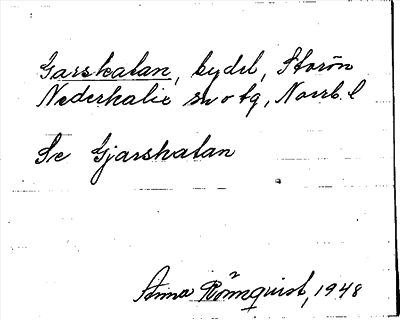 Garskalan, bydel, Storön
Nederkalix sn o tg, Norrb. l
Se Gjarskalan
Anna Rönnquist, 1948